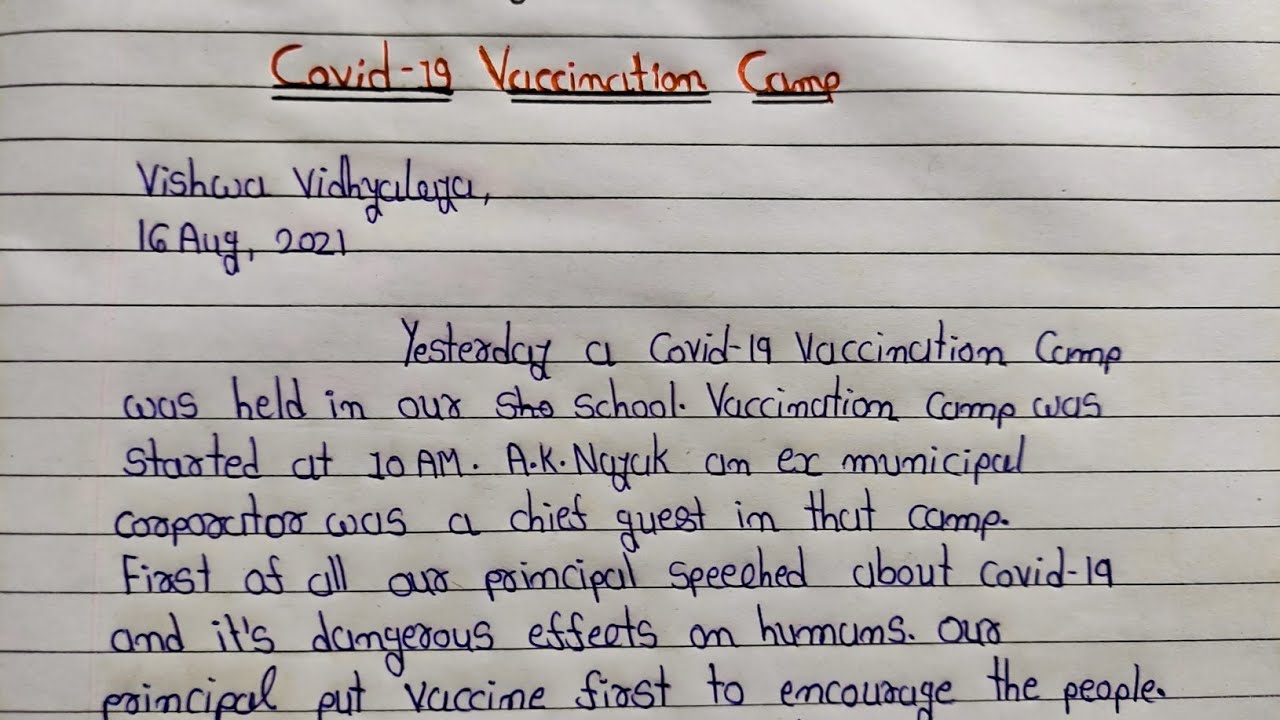 Covid-19 Vaccination Camp
Vishwa Vidhyalaya,
16 Aug, 2021
Yesterday a Covid-19 Vaccination Camp
was held in our sho school. Vaccination Camp was
started at 10 AM. A.K. Nayak an ex municipal
corporator was a chief guest in that camp.
First of all our principal speeched about covid-19
and it's dangerous effects on humans. Our
principal put vaccine first to encourage the people.